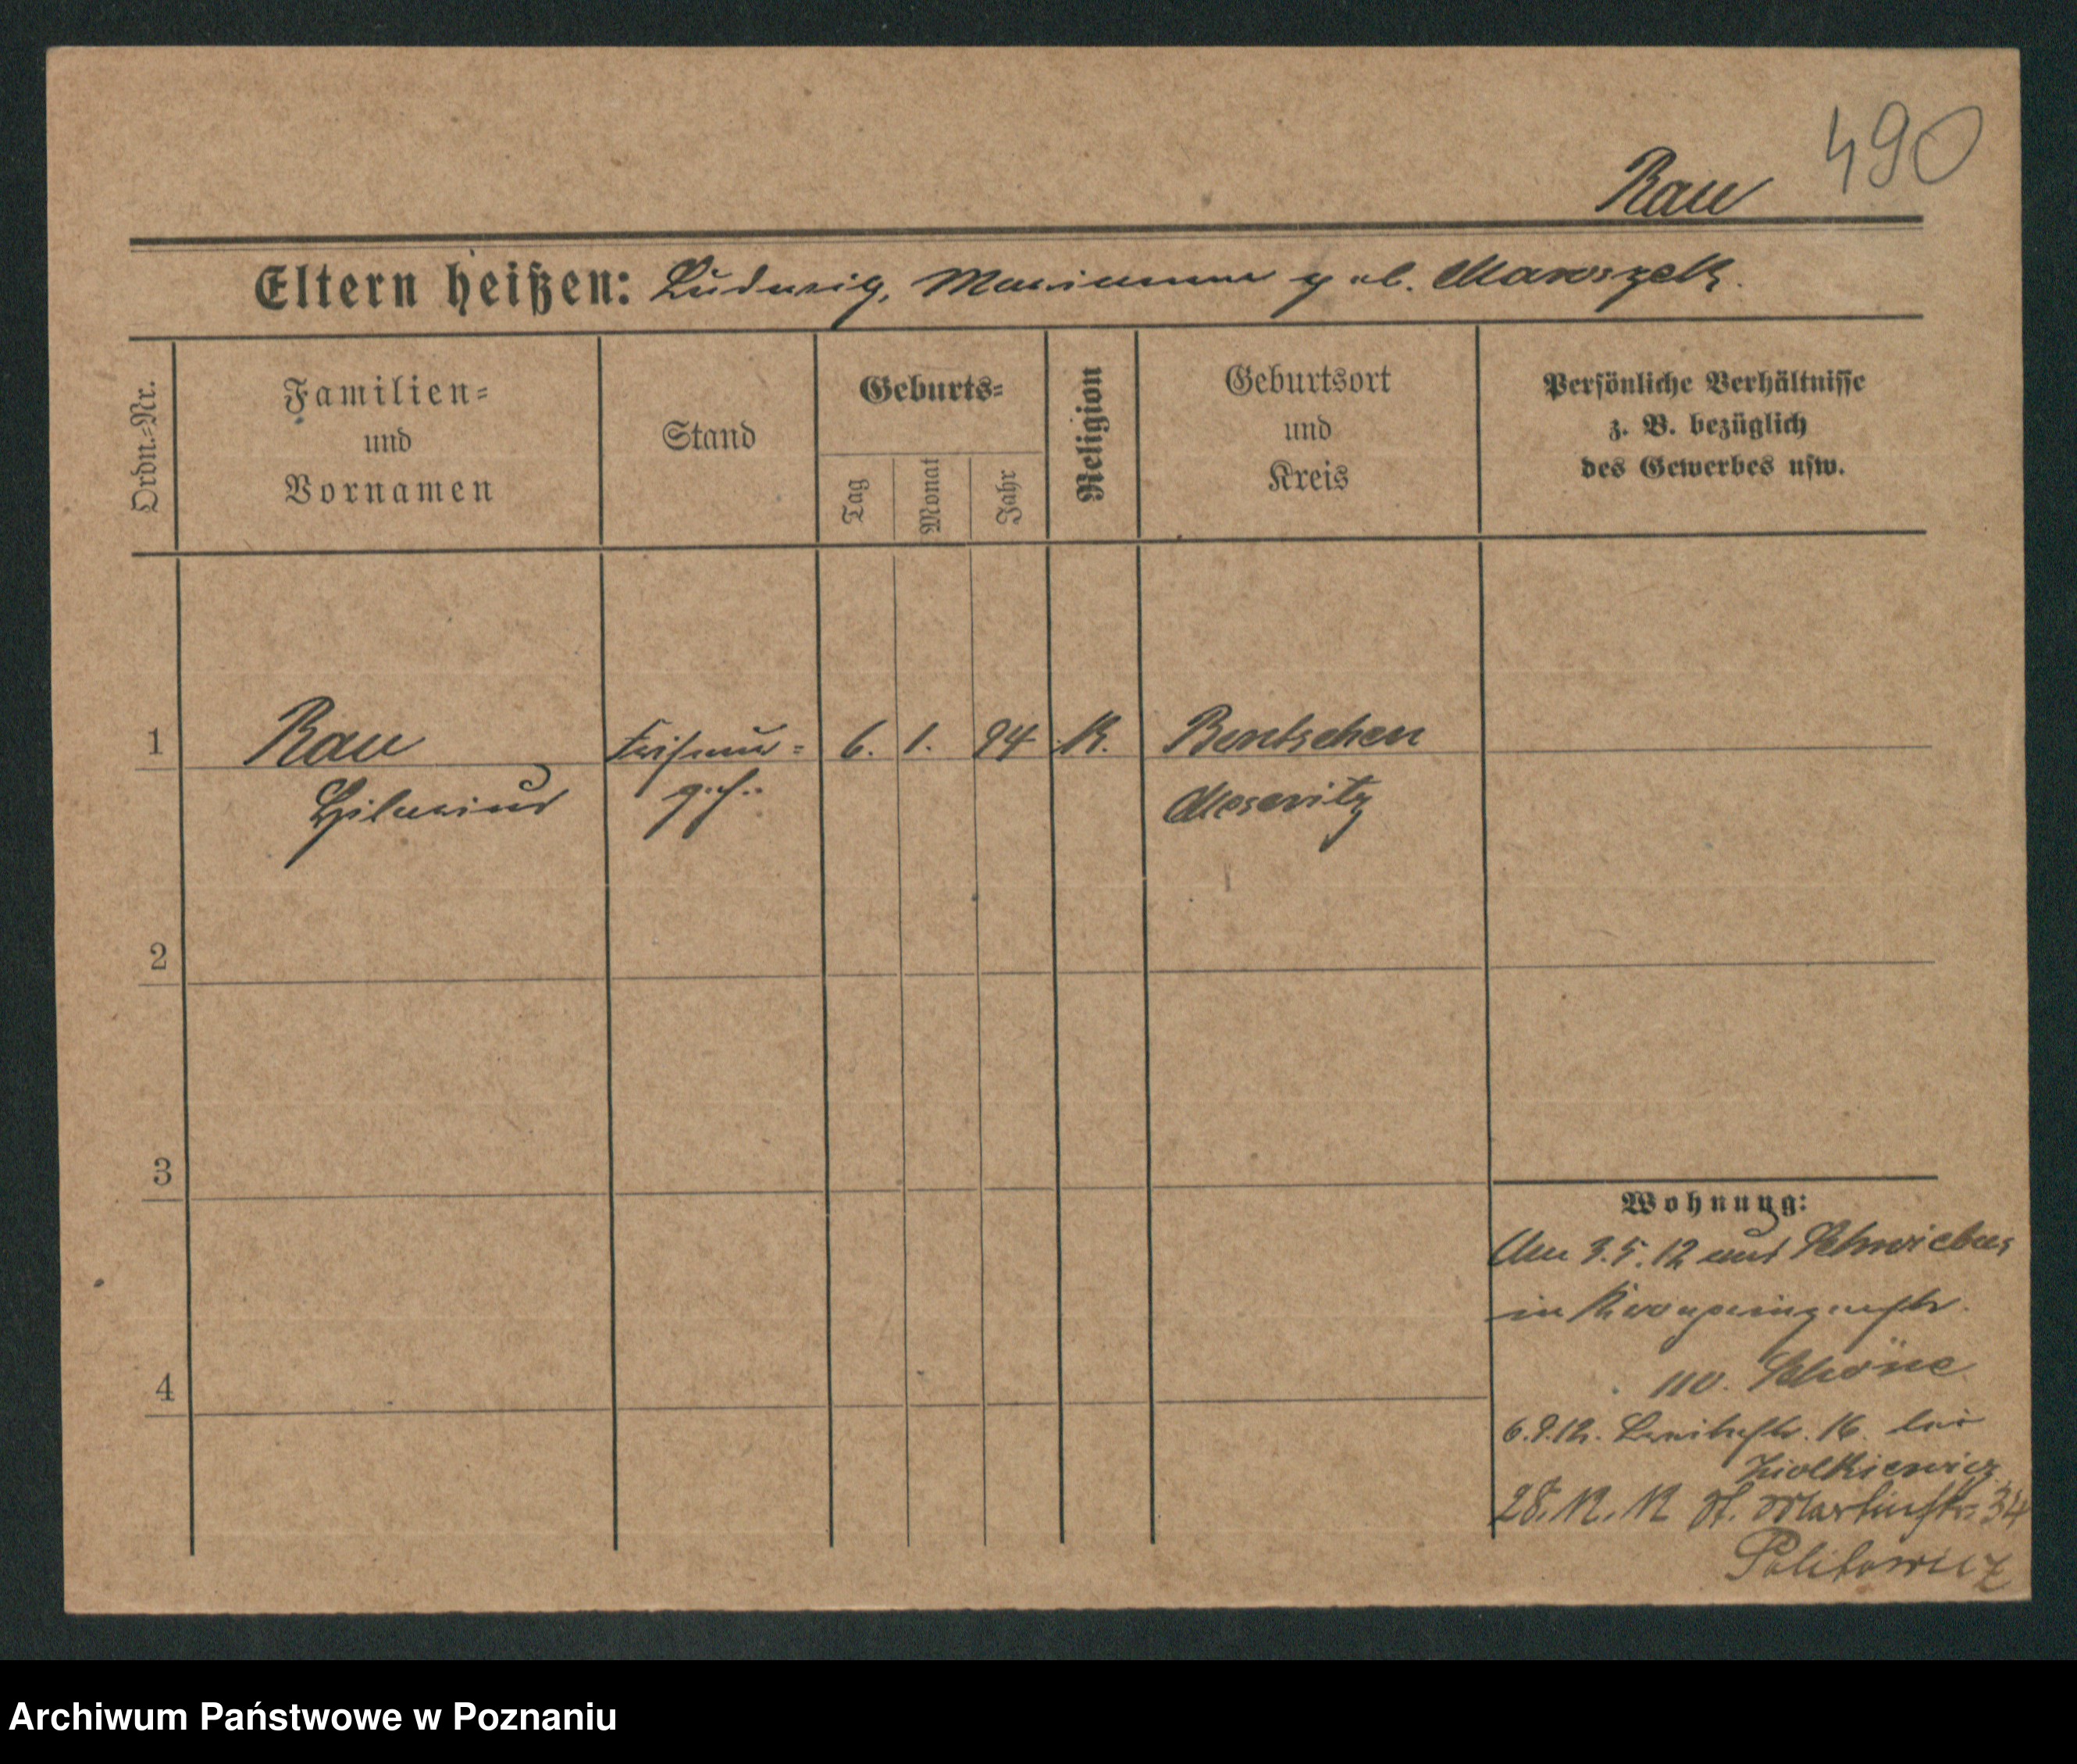 490
Rau
Eltern heißen: Ludwig, Marianna geb. Marszelk.
Ordn.-Nr.
Familien- und Vornamen
Stand
Geburts-
Tag
Monat
Jahr
Religion
Geburtsort und Kreis
Persönliche Verhältnisse z. B. bezüglich des Gewerbes usw.
1 Rau Friseur- 6. 1. 94 K. Bentschen
Hilarius geh. Meseritz
2
3
4
Wohnung:
Am 3.5.12 aus Schwiebus
in Kronprinzenstr.
110. Schöne
6.9.12. 16. bei
Ziolkiewicz
28.12.12 St. Martinstr. 34
Politowicz
Archiwum Państwowe w Poznaniu